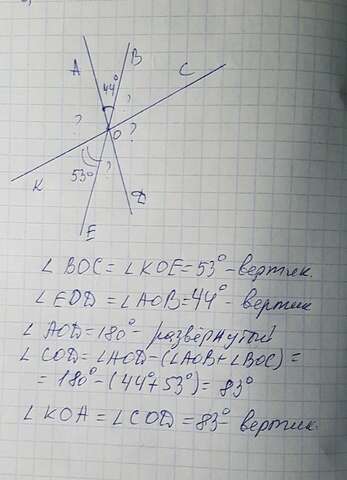 A
B
C
44°
?
?
O
?
K
53°
?
D
E
∠BOC = ∠KOE = 53° - вертик.
∠EOD = ∠AOB = 44° - вертик
∠AOD = 180° - развёрнутый
∠COD = ∠AOD - (∠AOB + ∠BOC) =
= 180° - (44° + 53°) = 83°
∠KOA = ∠COD = 83° - вертик.